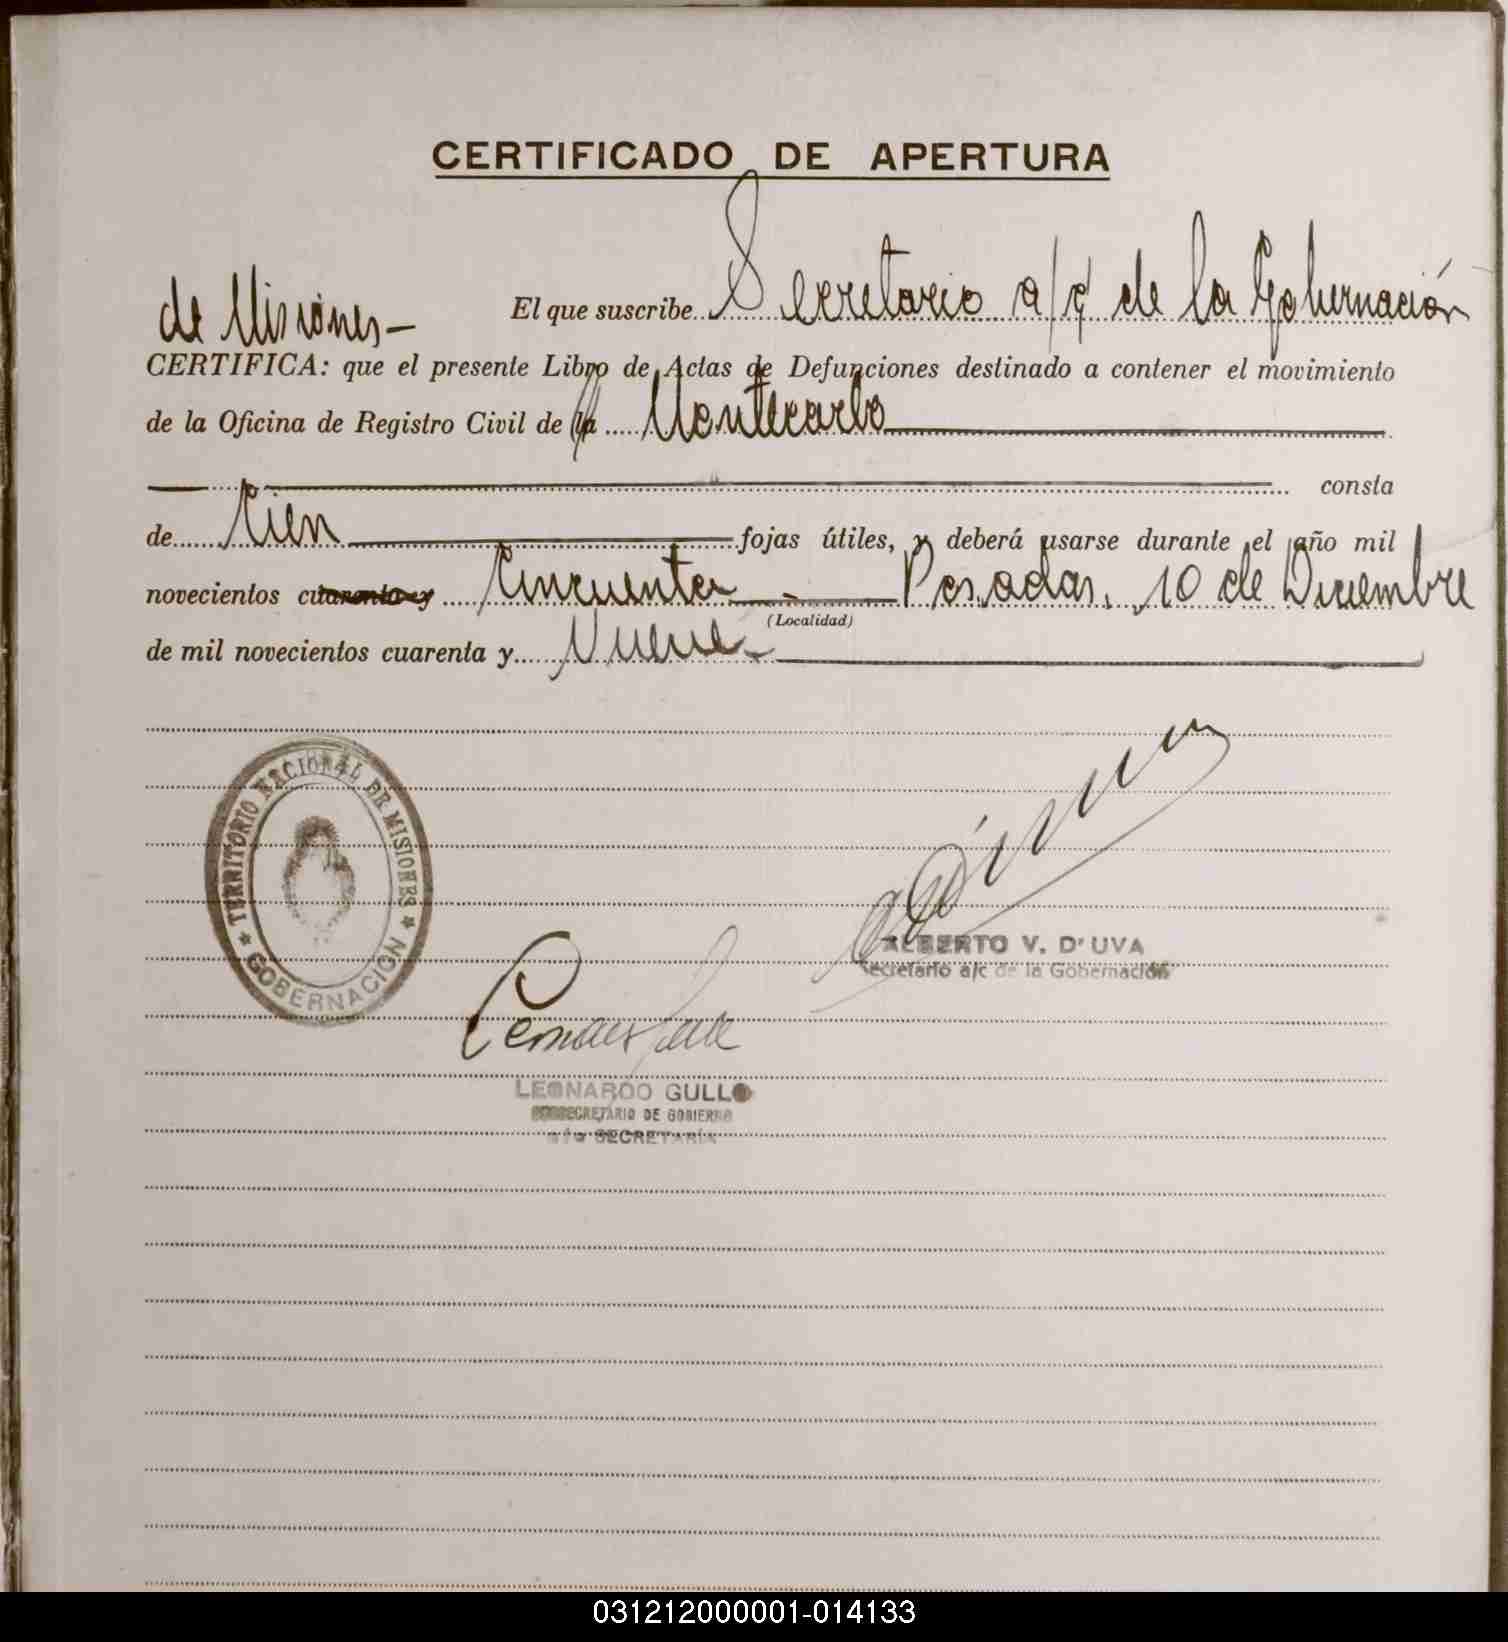 CERTIFICADO DE APERTURA
El que suscribe Secretario a/c de la Gobernación
de Misiones-
CERTIFICA: que el presente Libro de Actas de Defunciones destinado a contener el movimiento
de la Oficina de Registro Civil de la Montecarlo
consta
de Cien fojas útiles, y deberá usarse durante el año mil
novecientos cuarenta y Cincuenta - Posadas, 10 de Diciembre
(Localidad)
de mil novecientos cuarenta y Nueve -
TERRITORIO NACIONAL DE MISIONES
GOBERNACION
ALBERTO V. D'UVA
Secretario a/c de la Gobernación
LEONARDO GULLO
SUBSECRETARIO DE GOBIERNO
SECRETARÍA
031212000001-014133